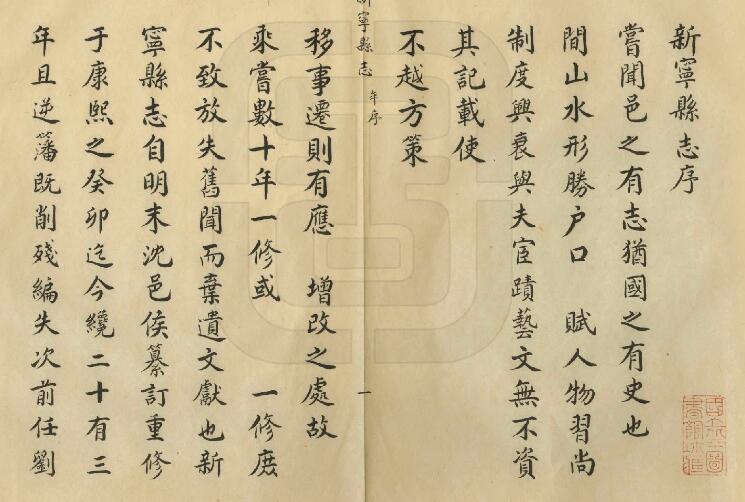 新寧縣志序
嘗聞邑之有志猶國之有史也
間山水形勝户口 賦人物習尚
制度興衰與夫宦蹟藝文無不資
其記載使
不越方策
新寧縣志 年序 一
移事遷則有應 增改之處故
乘嘗數十年一修或 一修庶
不致放失舊聞而棄遺文獻也新
寧縣志自明末沈邑侯纂訂重修
于康熙之癸卯迄今纔二十有三
年且逆藩既削殘編失次前任劉